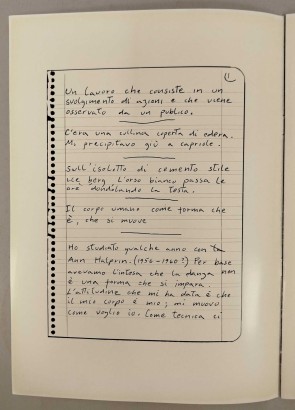 1
Un Lavoro che consiste in un
svolgimento di azioni e che viene
osservato da un pubblico.
C'era una collina coperta di edera.
Mi precipitavo giù a capriole.
Sull'isolotto di cemento stile
Le borg. L'orso bianco passa le
ore dondolando la testa.
Il corpo umano come forma che
è, che si muove
Ho studiato qualche anno con
Ann Halprin. (1956-1960?) Per base
avevamo l'intesa che la danza non
è una forma che si impara.
L'attitudine che mi ha data è che
il mio corpo è mio; mi muovo
come voglio io. Come tecnica ci